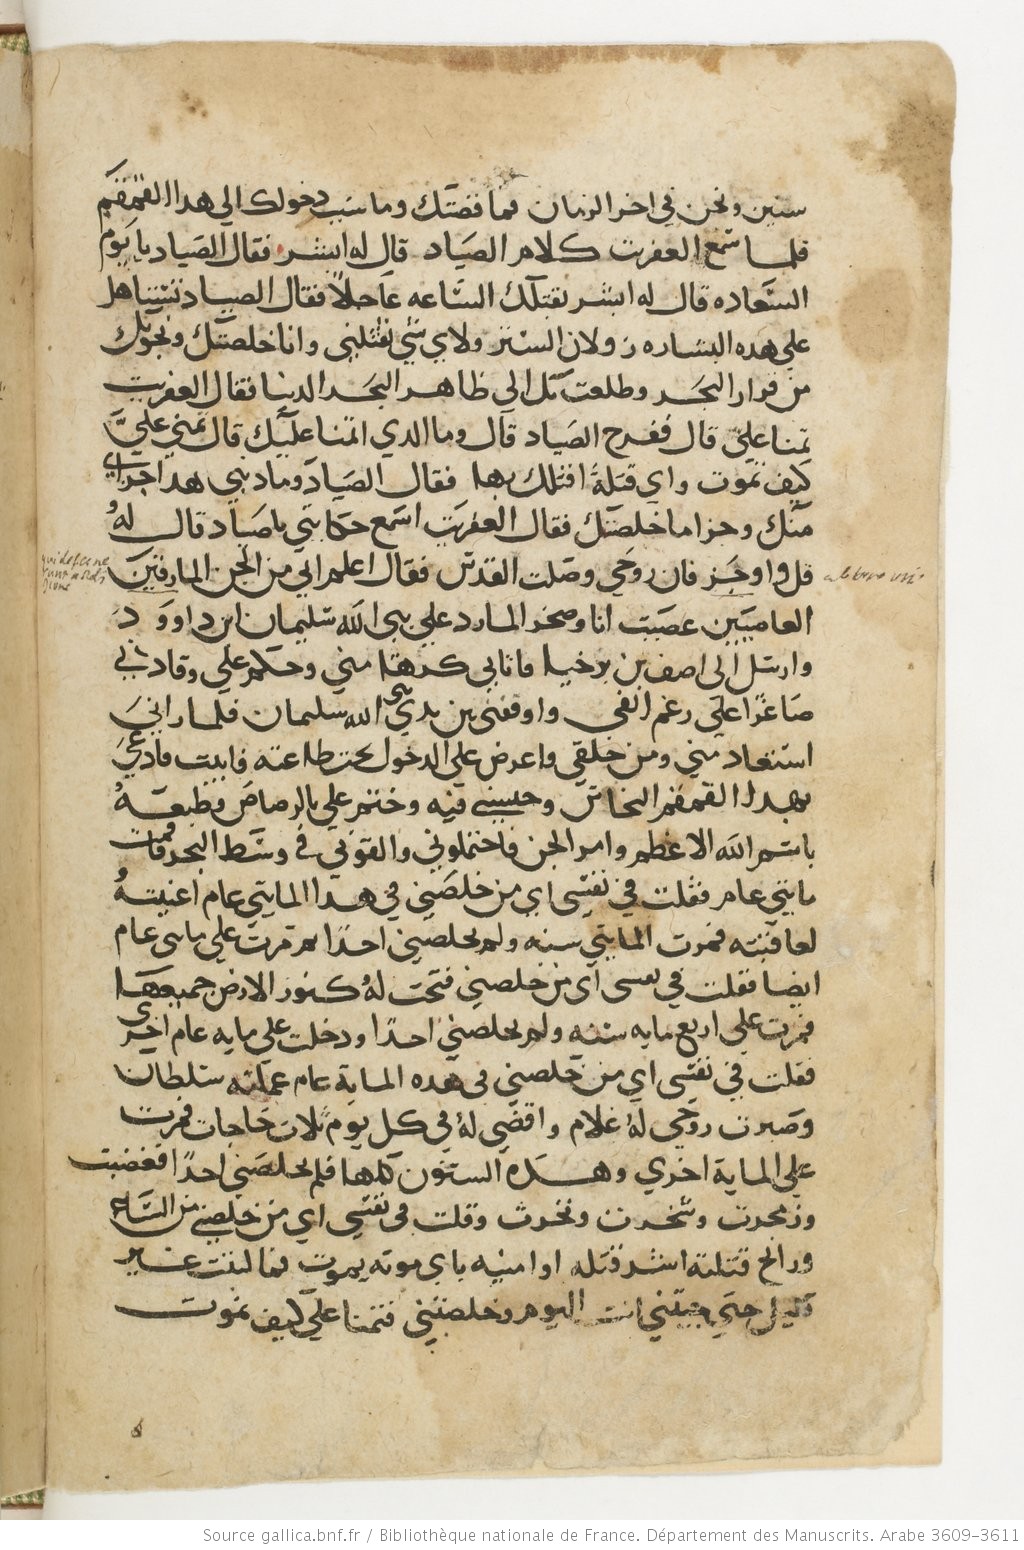 سنين ونحن في اخر الزمان فما قصتك وما سبب دخولك الي هدا القمقم
فلما سمع العفريت كلام الصياد قال له ابشر فقال الصياد يا يوم
السعاده قال له ابشر بقتلك الساعه عاجلا فقال الصياد تستاهل
علي هده البشاره زولان الستر ولاي شي تقتلني وانا خلصتك ونجيتك
من قرار البحر وطلعت بك الى ظاهر البحر الدنيا فقال العفريت
تمنا علي قال ففرح الصياد قال وما الدي اتمنا عليك قال تمني علي
كيف تموت واي قتلة اقتلك بها فقال الصياد وما دنبي هدا جزاي
منك وجزا ما خلصتك فقال العفريت اسمع حكايتي يا صياد قال له
قل واوجز فان روحي وصلت القدس فقال اعلم اني من الجن المارقين
العاصيين عصيت انا وصخر المارد علي نبي الله سليمان ابن داوود
وارسل الى اصف بن برخيا فاتا بي كرها مني وحكم علي وقادني
صاغرا على رغم انفي واوقفني بين يدي نبي الله سليمان فلما راني
استعاد مني ومن خلقي واعرض علي الدخول تحت طاعته فابيت فادعي
بهدا القمقم النحاس وحبسني فيه وختم علي بالرصاص وطبعه
باسم الله الاعظم وامر الجن فاحتملوني والقوني في وسط البحر فمت
مايتي عام فقلت في نفسي اي من خلصني في هدا المايتي عام اغنيته
لعاقبته فمرت المايتي سنه ولم يخلصني احدا ثم مرت علي مايتي عام
ايضا فقلت في نفسي اي من خلصني فتحت له كنوز الارض جميعها
فمرت علي اربع مايه سنه ولم يخلصني احدا ودخلت علي مايه عام اخرى
فقلت في نفسي اي من خلصني في هده الماية عام عملته سلطان
وصرت روحي له غلام واقضي له في كل يوم ثلات حاجات فمرت
علي الماية اخري وهده السنون كلها فلم يخلصني احدا فغضبت
وزمجرت وشخرت ونخرت وقلت في نفسي اي من خلصني من الساعه
ورايح قتلته اشر قتله او امنيه باي موته يموت فما لبثت غير
قليل حتي جيتني انت اليوم وخلصتني فتمنا علي كيف تموت